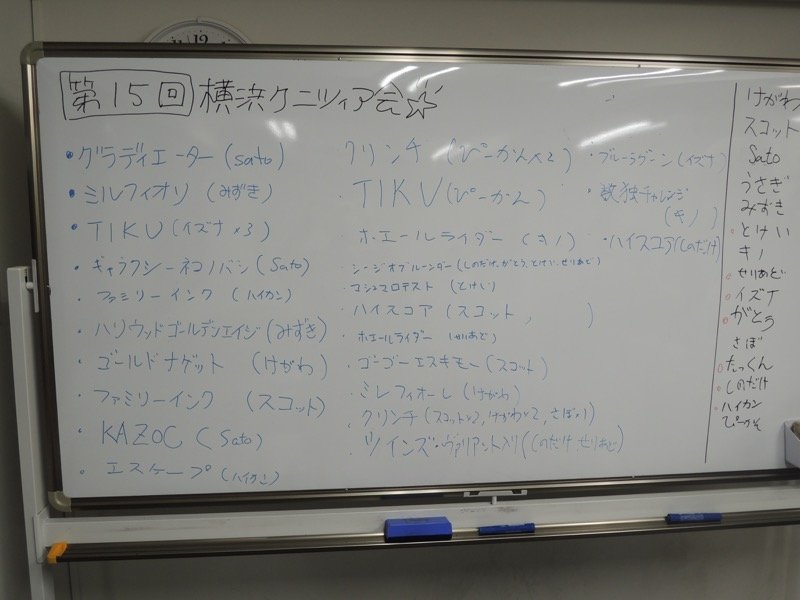 第15回 横浜クニツィア会☆
・グラディエーター (sato)
・ミルフィオリ (みずき)
・TIKU (イズナ×3)
・ギャラクシーネコノバシ (Sato)
・ファミリーインク (ハイカン)
・ハリウッドゴールデンエイジ (みずき)
・ゴールドナゲット (けがわ)
・ファミリーインク (スコット)
・KAZOC (Sato)
・エスケープ (ハイカン)
・クリンチ (ぴーかん×2)
・TIKU (ぴーかん)
・ホエールライダー (キノ)
・シージオブルーンダー (しのだけ,がとう,とけい,せりあど)
・マシュマロテスト (とけい)
・ハイスコア (スコット, )
・ホエールライダー (せりあど)
・ゴーゴーエスキモー (スコット)
・ミレフィオーレ (けがわ)
・クリンチ (スコット×2,けがわ×2,さぼ×1)
・ツインズ・ヴァリアント入り (しのだけ,せりあど)
・ブルーラグーン (イズナ)
・数独チャレンジ
(キノ)
・ハイスコア (しのだけ)
けがわ
スコット
Sato
うさぎ
みずき
とけい
キノ
せりあど
イズナ
がとう
さぼ
たっくん
しのだけ
ハイカン
ぴーかん
12